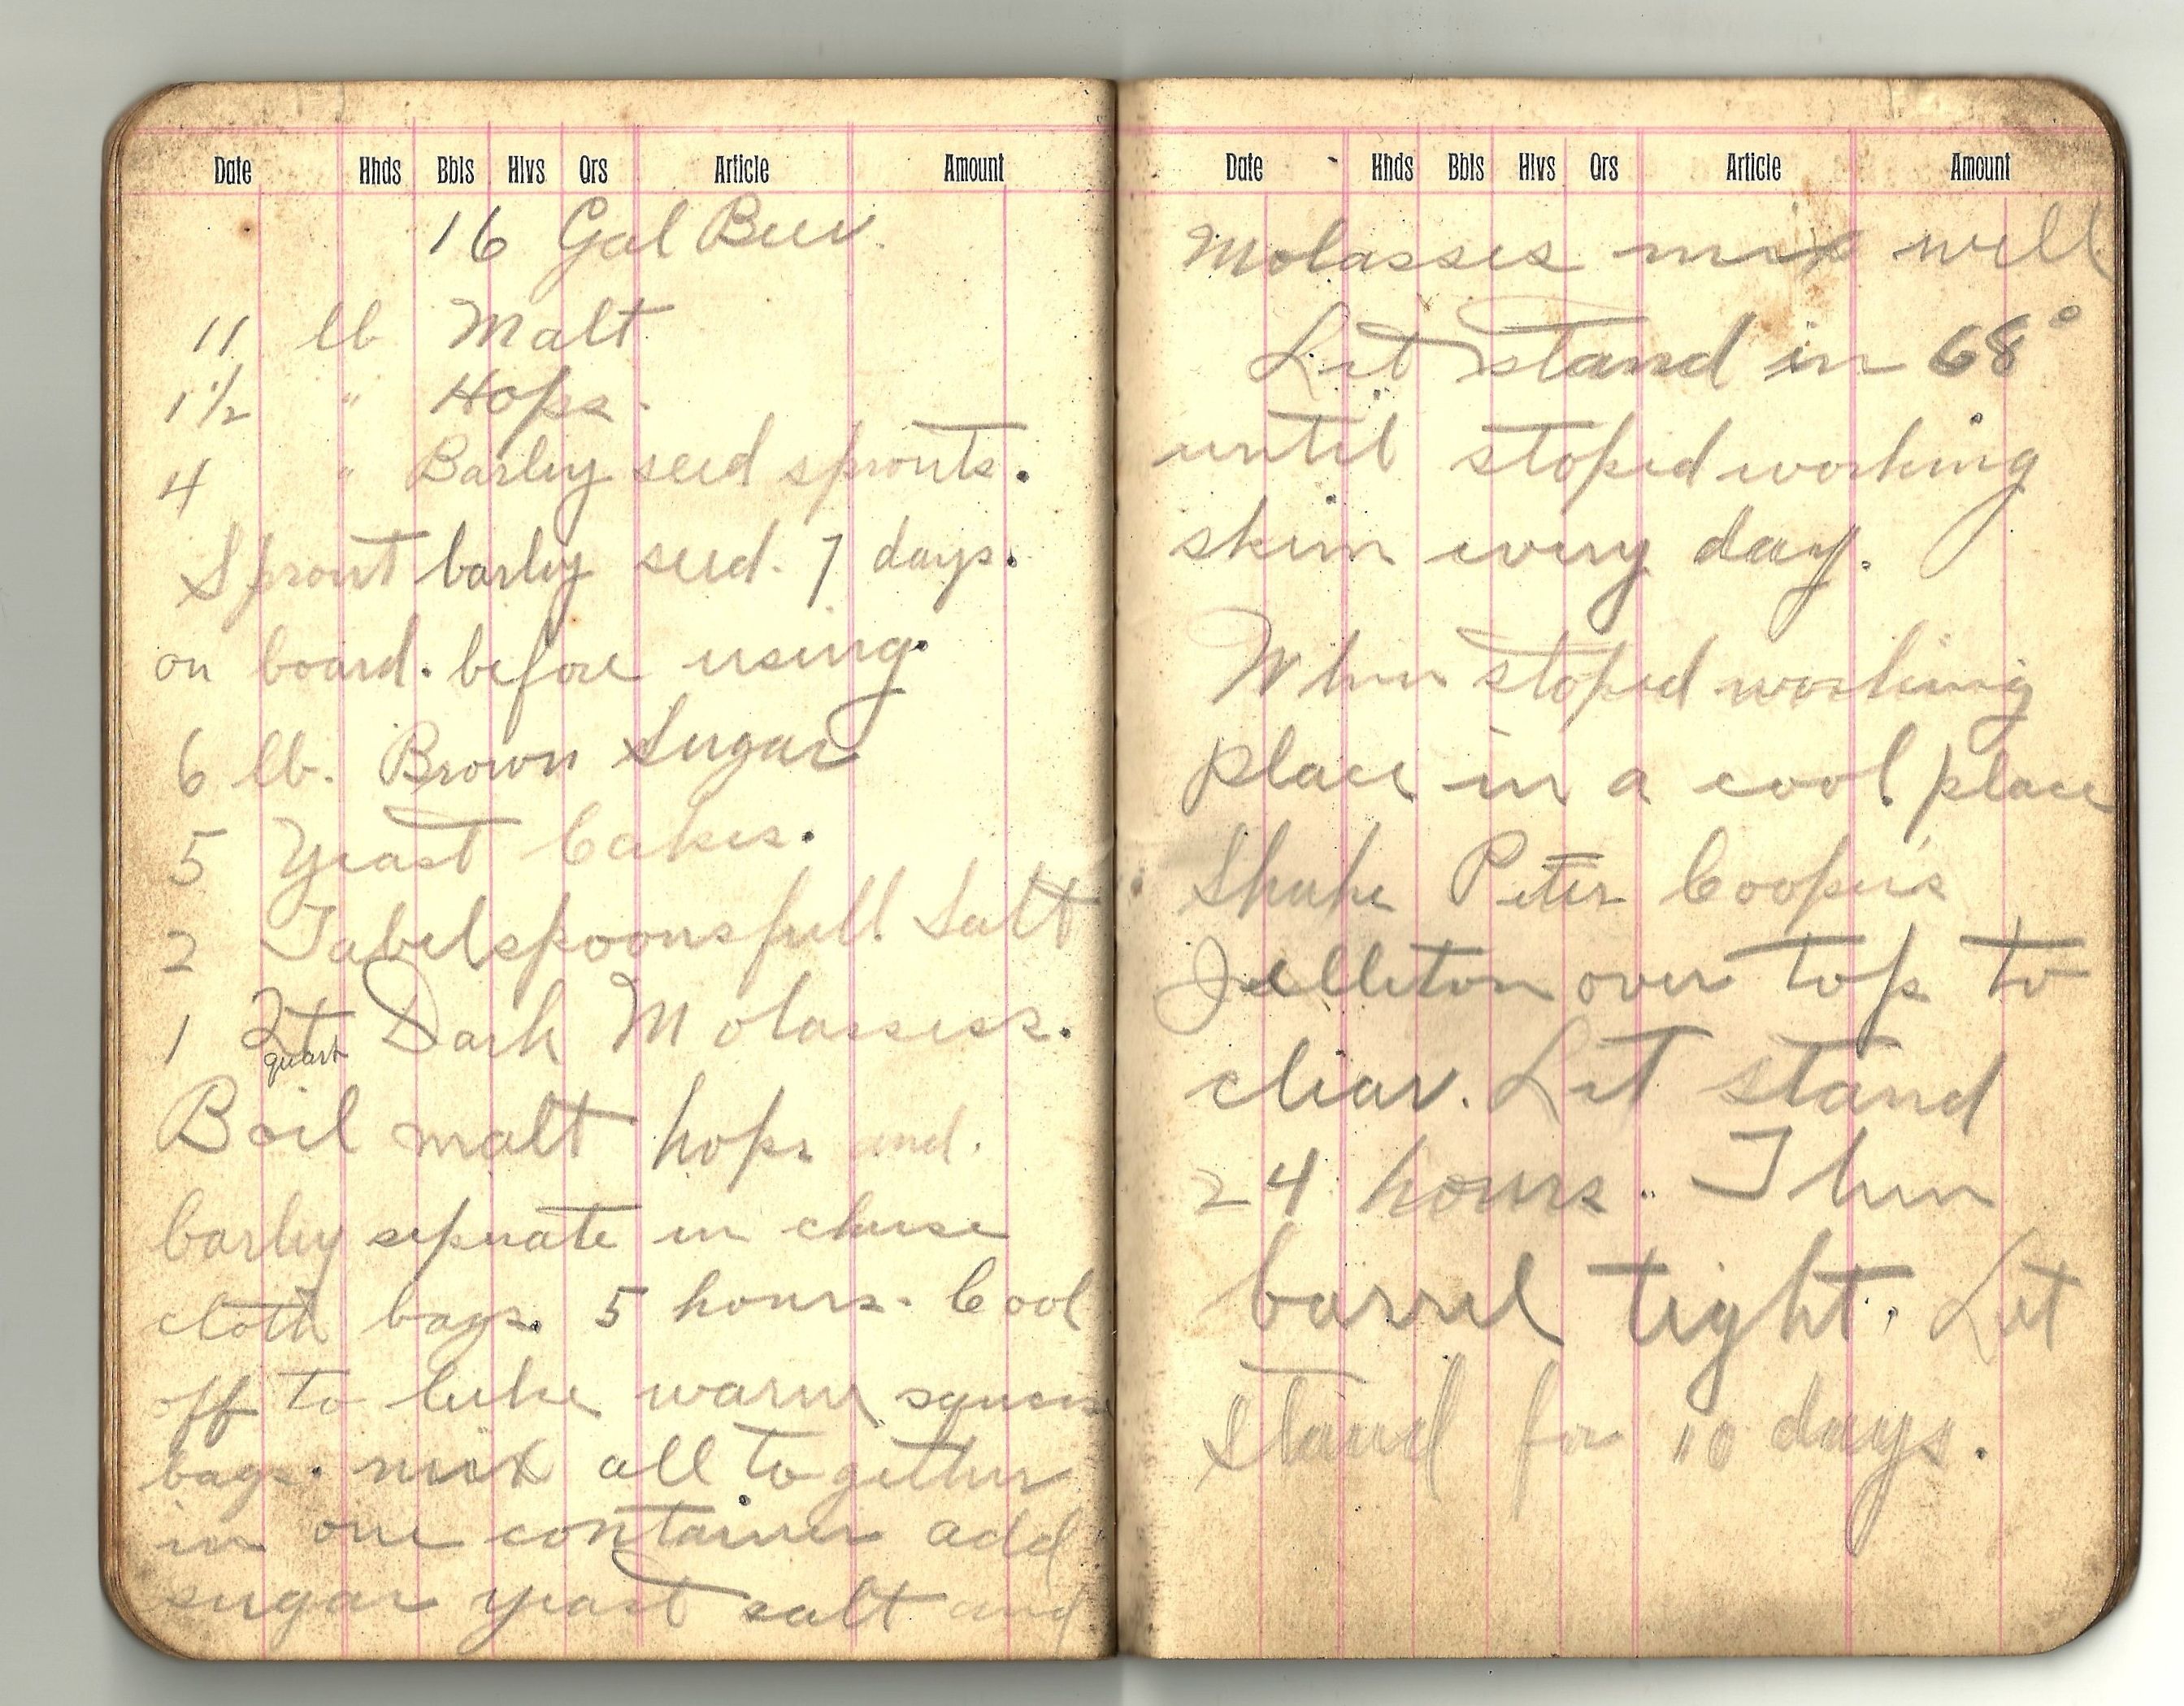 Date Hhds Bbls Hlvs Qrs Article Amount
16 Gal Beer.
11 lb Malt
1 1/2 " Hops.
4 " Barley seed sprouts.
Sprout barley seed. 7 days.
on board. before using.
6 lb. Brown Sugar
5 Yeast Cakes.
2 Tabelspoonsfull Salt
1 Qt Dark Molasses.
quart
Boil malt hops and.
barley seperate in cheese
cloth bags. 5 hours. Cool
off to luke warm squeeze
bags. mix all together
in one container add
sugar yeast salt and
Date Hhds Bbls Hlvs Qrs Article Amount
Molasses mix well
Let stand in 68°
until stoped working
skim every day.
When stoped working
place in a cool place
Shake Peter Cooper's
Jelleton over top to
clear. Let stand
24 hours. Then
barrel tight. Let
stand for 10 days.